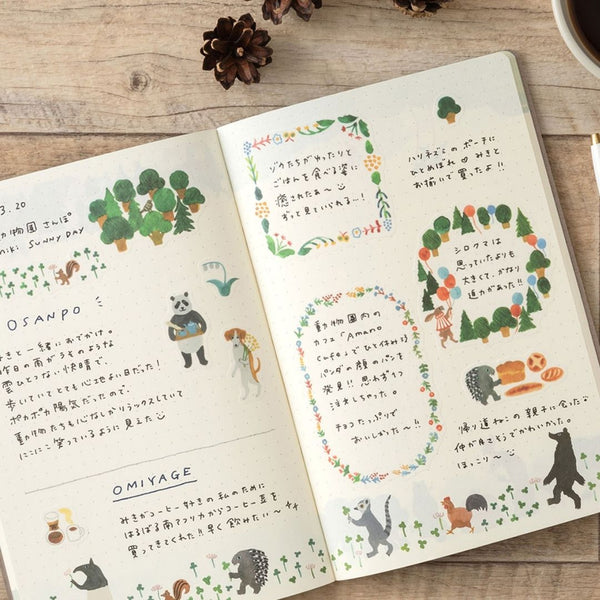 3.20
動物園さんぽ
miki SUNNY DAY
OSANPO
みきと一緒におでかけ。
昨日の雨がうそのような
雲ひとつない快晴で、
歩いていてとても心地よい日だった!
ポカポカ陽気だったので、
動物たちも心なしかリラックスしていて
にこにこ笑っているように見えた
OMIYAGE
みきがコーヒー好きの私のために
はるばる南アフリカからコーヒー豆を
買ってきてくれた!!早く飲みたい〜
ゾウたちがゆったりと
ごはんを食べる姿に
癒されたぁ〜
ずっと見ていられる…!
ハリネズミのポーチに
ひとめぼれ♡みきと
お揃いで買ったよ!!
シロクマは
思っていたよりも
大きくて、かなり
迫力があった!!
動物園内の
カフェ「Amano
Cafe」でひと休み
パンダの顔のパンを
発見!!思わず1つ
注文しちゃった。
チョコたっぷりで
おいしかった〜!!
帰り道ねこの親子に会った
仲が良さそうでかわいかった。
ほっこり〜